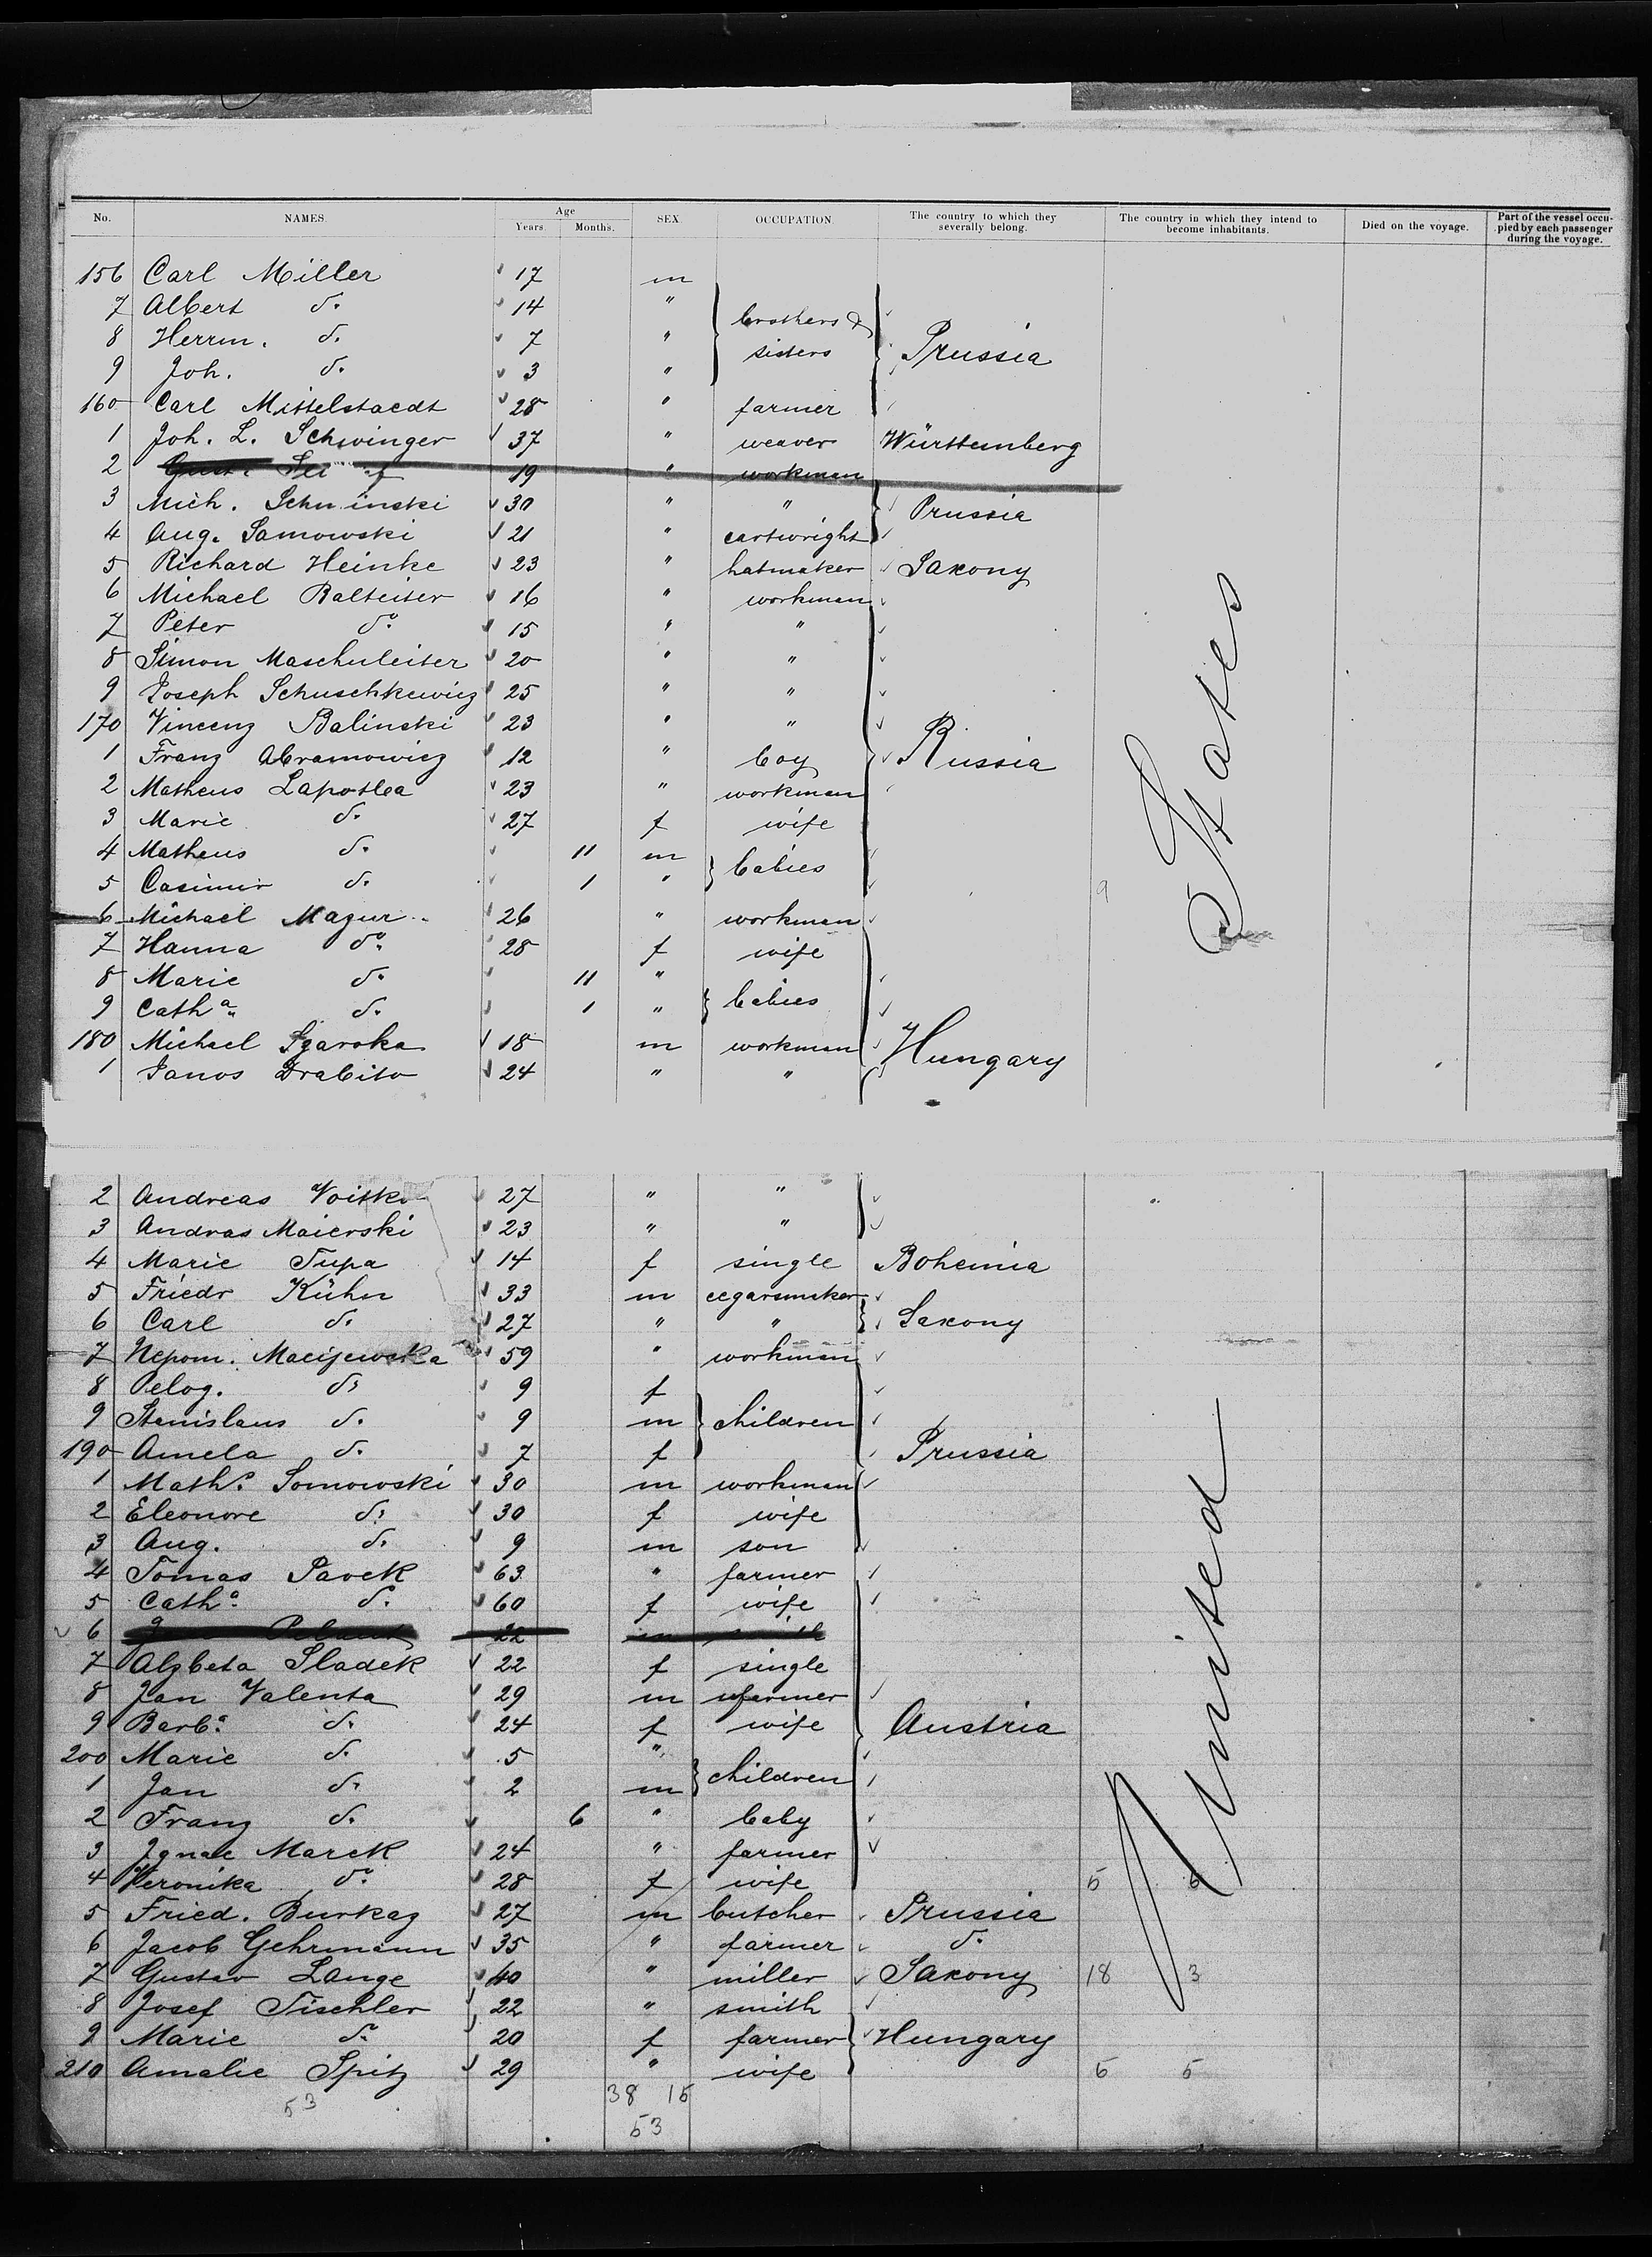 No. NAMES. Age Years Months. SEX. OCCUPATION. The country to which they severally belong. The country in which they intend to become inhabitants. Died on the voyage. Part of the vessel occupied by each passenger during the voyage.
156 Carl Miller 17 m
7 Albert do. 14 "
brothers &
8 Herrm. do. 7 " sisters Prussia
9 Joh. do. 3 "
160 Carl Mittelstaedt 28 " farmer
1 Joh. L. Schwinger 37 " weaver Württemberg
2 19 " workman
3 Mich. 30 " " Prussia
4 Aug. Samowski 21 " cartwright
5 Richard Heinke 23 " hatmaker Saxony
6 Michael Balteiter 16 " workman
7 Peter do. 15 " "
8 Simon Maschuleiter 20 " "
9 Joseph Schuschkewicz 25 " "
170 Vincenz Balinski 23 " "
1 Franz Abramowicz 12 " boy Russia
2 Matheus Lapotlea 23 " workman
3 Marie do. 27 f wife
4 Matheus do. 11 m babies
5 Casimir do. 1 " 9
6 Michael Mazur 26 " workman
7 Hanna do. 28 f wife
8 Marie do. 11 "
9 Catha. do. 1 " babies
180 Michael Sgaroka 18 m workman Hungary
1 Janos Drabito 24 " "
States
2 Andreas Voitko 27 " "
3 Andras Maierski 23 " "
4 Marie Tupa 14 f single Bohemia
5 Friedr Kühn 33 m cegarsmaker
6 Carl do. 27 " " Saxony
7 Nepom. Macijewska 59 " workman
8 Pelog. do. 9 f
9 Stanislaus do. 9 m children
190 Amela do. 7 f Prussia
1 Maths. Somowski 30 m workman
2 Eleonore do. 30 f wife
3 Aug. do. 9 m son
4 Tomas Pavek 63 " farmer
5 Catha. do. 60 f wife
6 22 m smith
7 Alzbeta Sladek 22 f single
8 Jan Valenta 29 m farmer
9 Barba. do. 24 f wife Austria
200 Marie do. 5 "
1 Jan do. 2 m children
2 Franz do. 6 " baby
3 Ignac Marek 24 " farmer
4 Veronika do. 28 f wife 5 6
5 Fried. Burkaz 27 m butcher Prussia
6 Jacob Gehrmann 35 " farmer do.
7 Gustav Lange 40 " miller Saxony 18 3
8 Josef Tischler 22 " smith
9 Marie do. 20 f farmer Hungary
210 Amalie Spitz 29 " wife 5 5
United
53 38 15
53